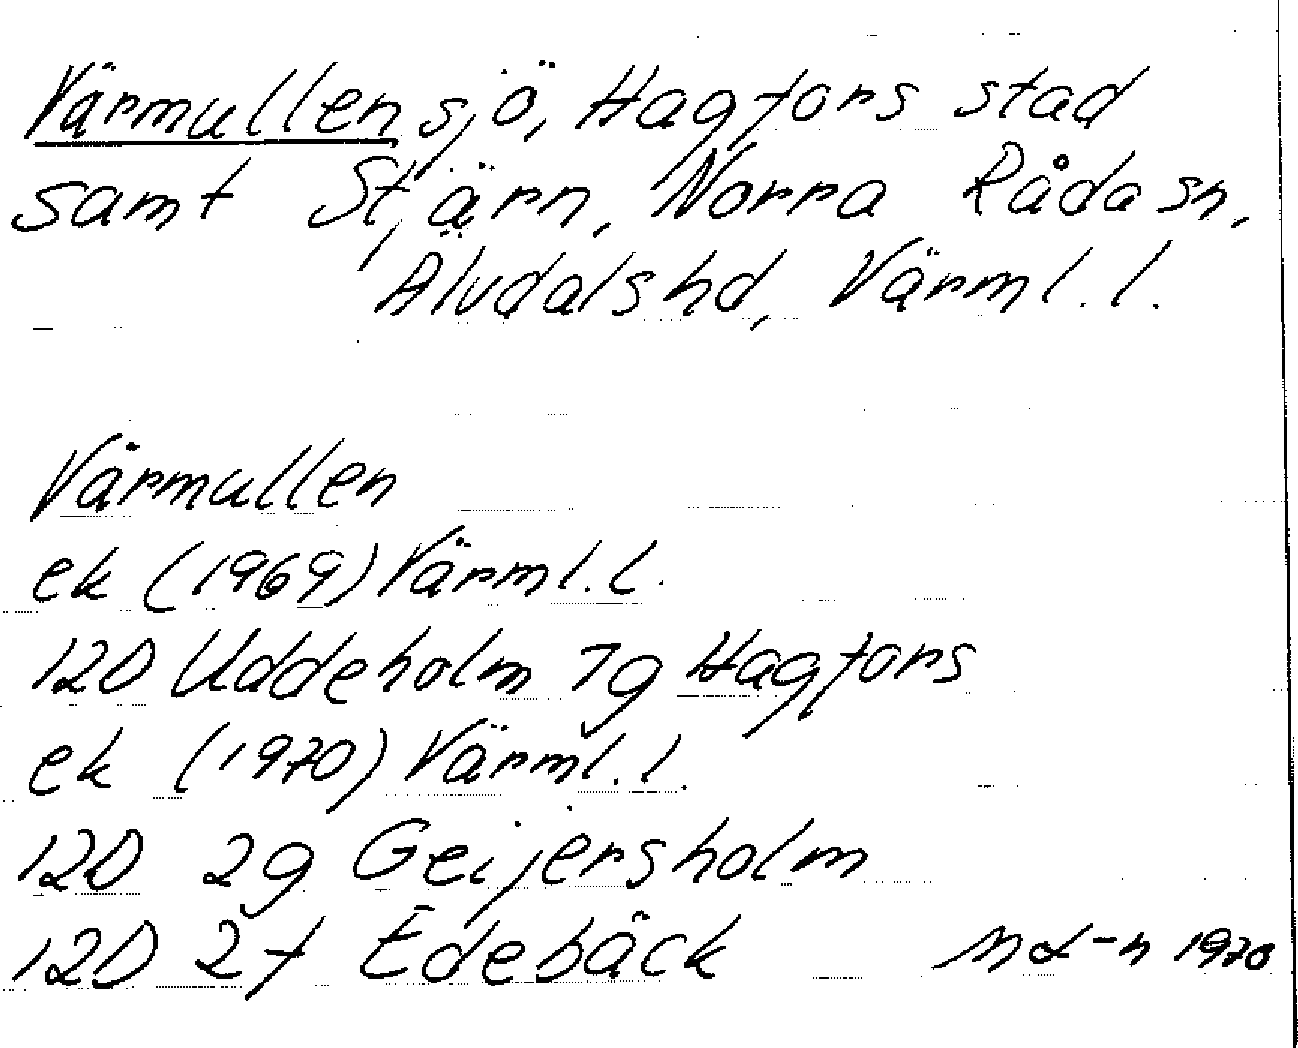 Värmullen sjö, Hagfors stad
samt Stjärn, Norra Råda sn,
Älvdals hd, Värml. l.
Värmullen
ek (1969) Värml. l.
12D Uddeholm 7g Hagfors
ek (1970) Värml. l.
12D 2g Geijersholm
12D 2f Edebäck 1970